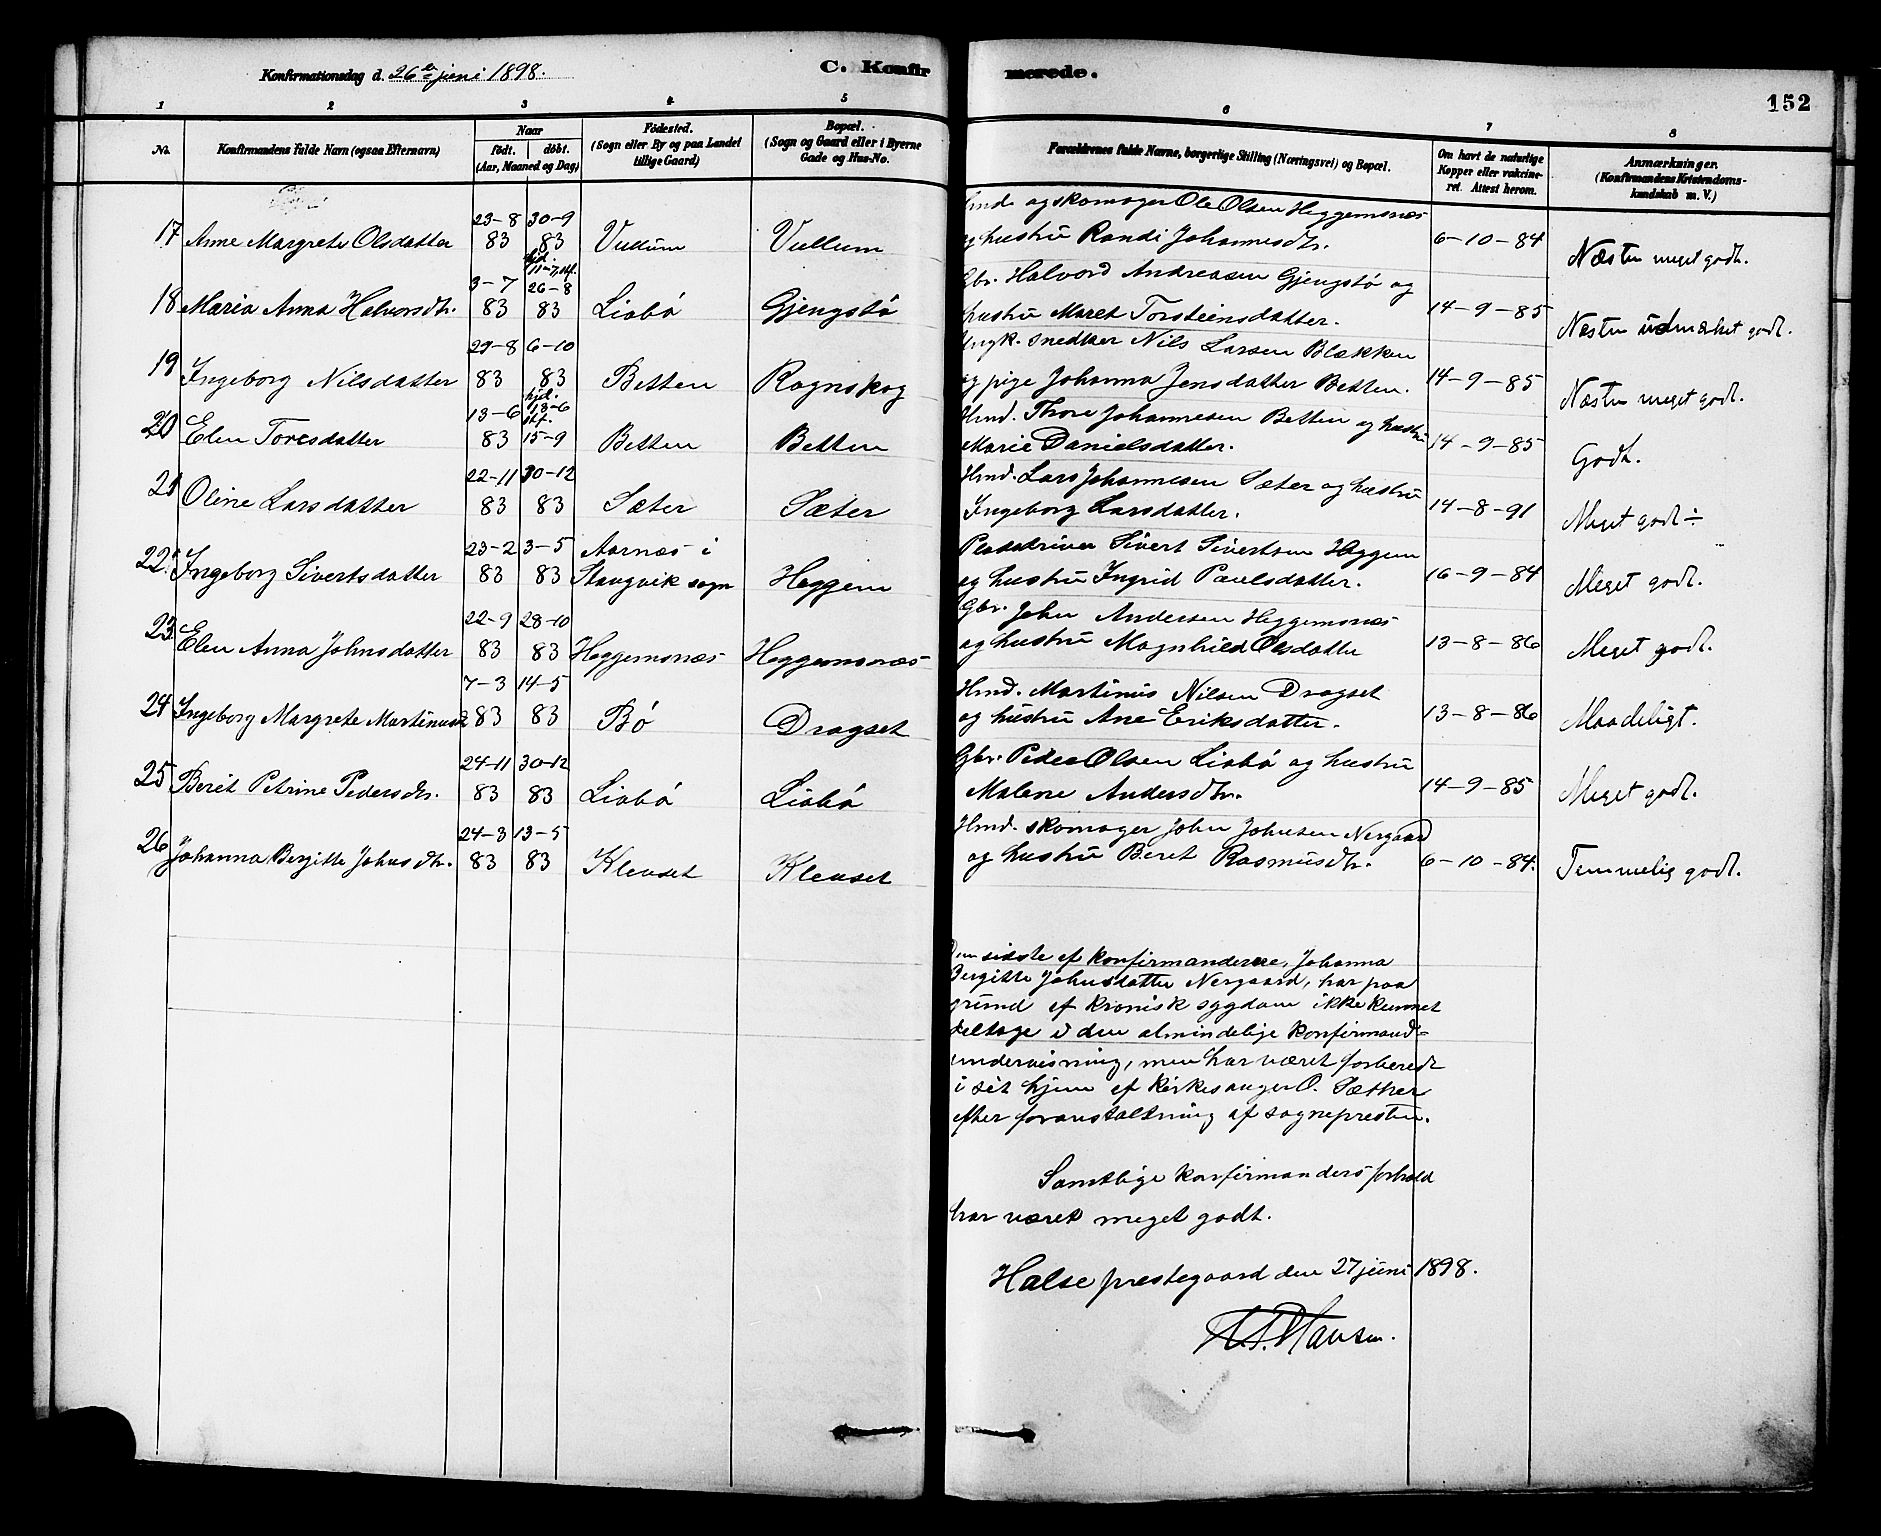 Konfirmationsdag d. 26de juni 1898.
C. Konfirmerede.
152
1 2 3 4 5 6 7 8
No.
Konfirmandens fulde Navn (ogsaa Efternavn)
Naar
født. døbt.
(Aar, Maaned og Dag)
Fødested.
(Sogn eller By og paa Landet
tillige Gaard)
Bopæl.
(Sogn og Gaard eller i Byerne
Gade og Hus-No.
Forældrenes fulde Navne, borgerlige Stilling (Næringsvei) og Bopæl.
Om havt de naturlige
Kopper eller vakcine-
ret. Attest herom.
Anmærkninger.
(Konfirmandens Kristendoms-
kundskab m. V.)
Piger
23-8 30-9 Hmd. og skomager Ole Olsen Heggemsnæs
17 Anne Margrete Olsdatter 83 83 Vullum Vullum og hustru Randi Johannesdtr. 6-10-84 Næsten meget godt.
hjd. 11-7, stf.
3-7 26-8 Gbr. Halvord Andreasen Gjengstø og
18 Maria Anna Halvorsdtr. 83 83 Liabø Gjengstø hustru Maret Torsteinsdatter. 14-9-85 Næsten udmærket godt.
29-8 6-10 Ungk. snedker Nils Larsen Blækken
19 Ingeborg Nilsdatter 83 83 Betten Rognskog og pige Johanna Jensdatter Betten. 14-9-85 Næsten meget godt.
hjd.
13-6 13-6 stf. Hmd. Thore Johannesen Betten og hustru
20 Elen Toresdatter 83 15-9 Betten Betten Marie Danielsdatter. 14-9-85 Godt.
22-11 30-12 Hmd. Lars Johannesen Sæter og hustru
21 Oline Larsdatter 83 83 Sæter Sæter Ingeborg Larsdatter. 14-8-91 Meget godt ÷
23-2 3-5 Aarnæs i Pladsdriver Sivert Sivertsen Heggem
22. Ingeborg Sivertsdatter 83 83 Stangvik sogn Heggem og hustru Ingrid Paulsdatter. 16-9-84 Meget godt.
22-9 28-10 Gbr. John Andersen Heggemsnæs
23. Elen Anna Johnsdatter 83 83 Heggemsnæs Heggemsnæs og hustru Magnhild Olsdatter 13-8-86 Meget godt.
7-3 14-5 Hmd. Martinus Nilsen Dragset
24 Ingeborg Margrete Martinusd. 83 83 Bø Dragset og hustru Ane Eriksdatter. 13-8-86 Maadeligt.
24-11 30-12 Gbr. Peder Olsen Liabø og hustru
25 Berit Petrine Pedersdtr. 83 83 Liabø Liabø Malene Andersdtr. 14-9-85 Meget godt.
24-3 13-5 Hmd. skomager John Johnsen Nergaard
26 Johanna Bergitte Johnsdtr. 83 83 Klevset Klevset og hustru Beret Rasmusdtr. 6-10-84. Temmelig godt.
Den sidste af konfirmanderne, Johanna
Bergitte Johnsdatter Nergaard, har paa
grund af kronisk sygdom ikke kunnet
deltage i den almindelige konfirmand-
undervisning, men har været forberedt
i sit hjem af kirkesanger O. Sæther
efter foranstaltning af sognepresten.
Samtlige konfirmanders forhold
har været meget godt.
Halse prestegaard den 27 juni 1898.
Hansen.